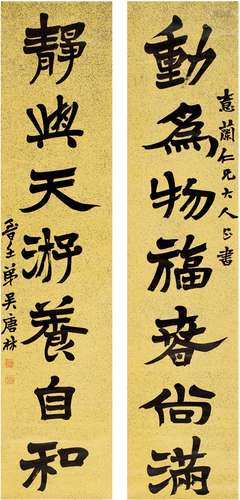 動為物福春尚滿
意蘭仁兄大人正書
靜與天游養自和
晉壬弟吳唐林